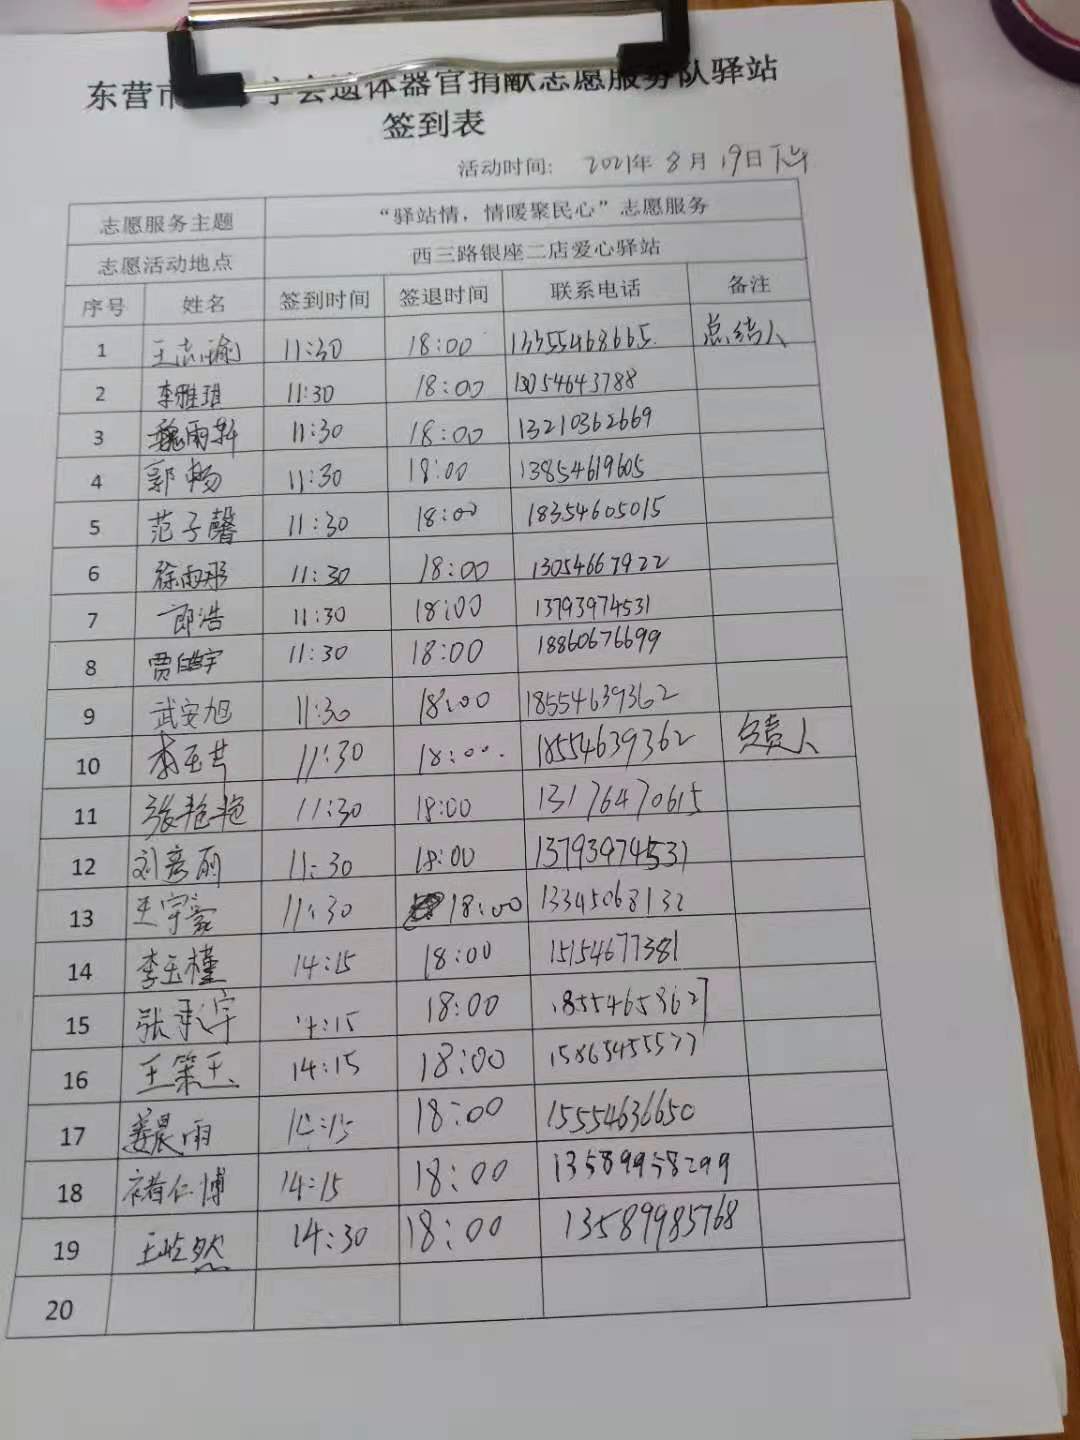 东营市 字会遗体器官捐献志愿服务队驿站
签到表
活动时间: 2021年 8月 19日 下午
志愿服务主题 “驿站情，情暖聚民心”志愿服务
志愿活动地点 西三路银座二店爱心驿站
序号 姓名 签到时间 签退时间 联系电话 备注
1 王志瑜 11:30 18:00 13355468665 总结人
2 李雅琪 11:30 18:00 13054643788
3 魏雨新 11:30 18:00 13210362669
4 郭畅 11:30 18:00 13854619605
5 范子馨 11:30 18:00 18354605015
6 徐雨彤 11:30 18:00 13054667922
7 郎浩 11:30 18:00 13793974531
8 贾皓宇 11:30 18:00 18860676699
9 武安旭 11:30 18:00 18554639362
10 李玉芹 11:30 18:00 18554639362 负责人
11 张艳艳 11:30 18:00 13176470615
12 刘彦丽 11:30 18:00 13793974531
13 王宇豪 11:30 18:00 13345068132
14 李玉槿 14:15 18:00 15154677381
15 张承宇 14:15 18:00
16 王策玉 14:15 18:00
17 姜晨雨 14:15 18:00 15554636650
18 褚仁博 14:15 18:00 13589958299
19 王屹然 14:30 18:00 13589985768
20